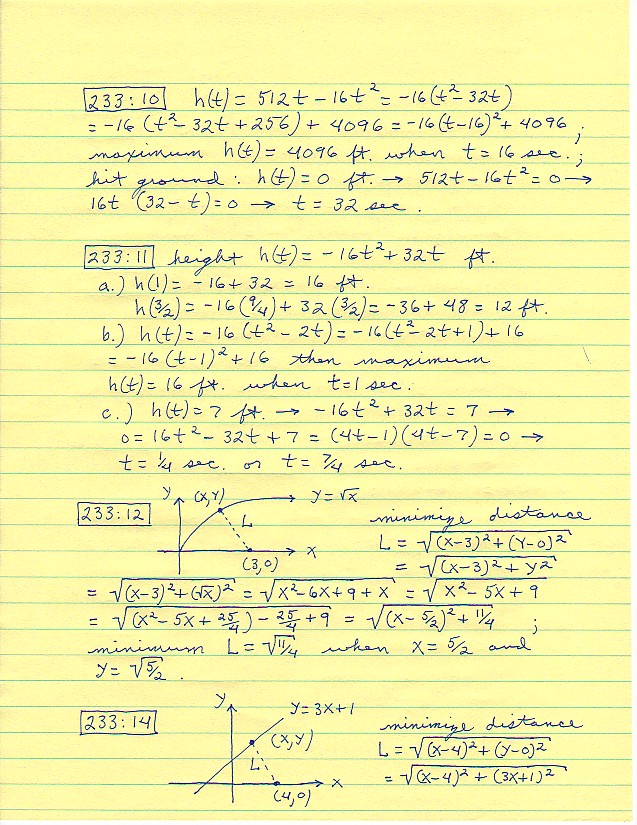 233:10 h(t) = 512t - 16t² = -16(t² - 32t)
= -16 (t² - 32t + 256) + 4096 = -16(t-16)² + 4096 ;
maximum h(t) = 4096 ft. when t = 16 sec. ;
hit ground : h(t) = 0 ft. → 512t - 16t² = 0 →
16t (32 - t) = 0 → t = 32 sec .
233:11 height h(t) = -16t² + 32t ft.
a.) h(1) = -16 + 32 = 16 ft.
h(3/2) = -16(9/4) + 32(3/2) = -36 + 48 = 12 ft.
b.) h(t) = -16(t² - 2t) = -16(t² - 2t + 1) + 16
= -16(t-1)² + 16 then maximum
h(t) = 16 ft. when t = 1 sec.
c.) h(t) = 7 ft. → -16t² + 32t = 7 →
0 = 16t² - 32t + 7 = (4t-1)(4t-7) = 0 →
t = 1/4 sec. or t = 7/4 sec.
233:12
Y (X,Y) Y = √x
L
X
(3,0)
minimize distance
L = √((X-3)² + (Y-0)²)
= √((X-3)² + Y²)
= √((X-3)² + (√x)²) = √(X² - 6X + 9 + X) = √(X² - 5X + 9)
= √((X² - 5X + 25/4) - 25/4 + 9) = √((X - 5/2)² + 11/4) ;
minimum L = √(11/4) when X = 5/2 and
Y = √(5/2) .
233:14
Y Y = 3X + 1
(X,Y)
L
X
(4,0)
minimize distance
L = √((X-4)² + (Y-0)²)
= √((X-4)² + (3X+1)²)